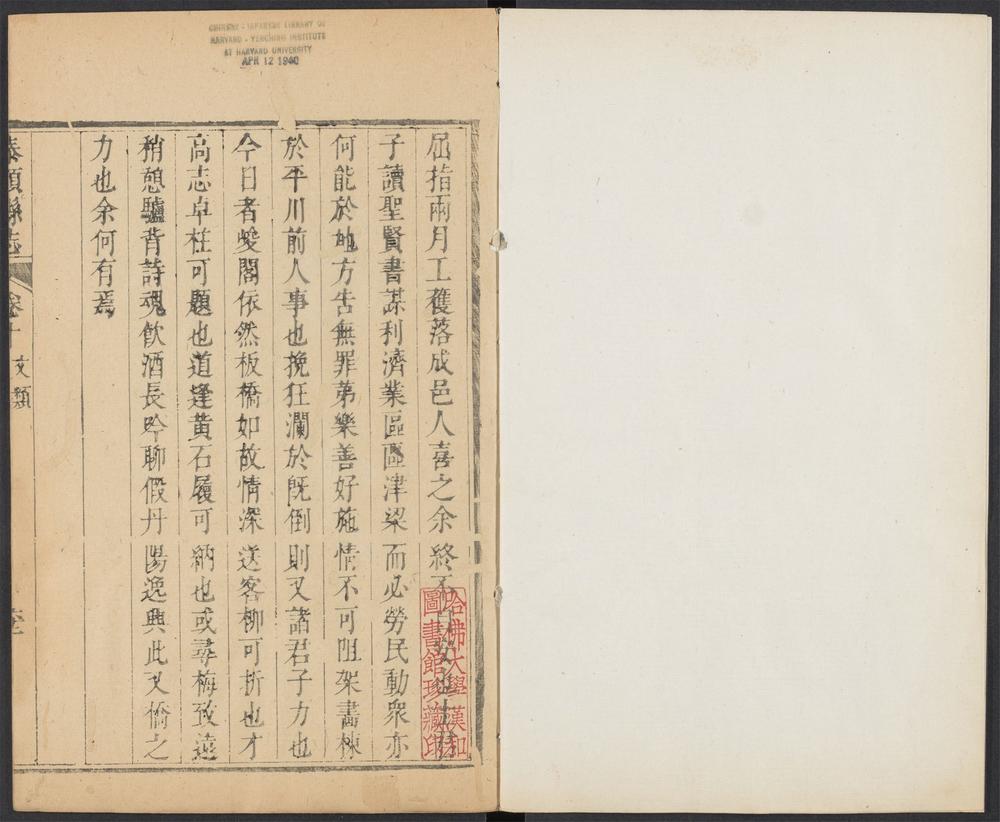 CHINESE - JAPANESE LIBRARY OF
HARVARD - YENCHING INSTITUTE
AT HARVARD UNIVERSITY
APR 12 1940
屈指兩月工穫落成邑人喜之余終不
子讀聖賢書謀利濟業區區津梁而必勞民動衆亦
何能於地方告無罪第樂善好施情不可阻架畵棟
於平川前人事也挽狂瀾於旣倒則又諸君子力也
今日者㕙閣依然板橋如故情深送客柳可折也才
高志卓柱可題也道逢黃石履可納也或尋梅致遠
稍憩驢背詩魂飮酒長吟聊假丹陽逸興此又橋之
力也余何有焉
泰順縣志
卷十
文類
哈佛大學漢和
圖書館珍藏印